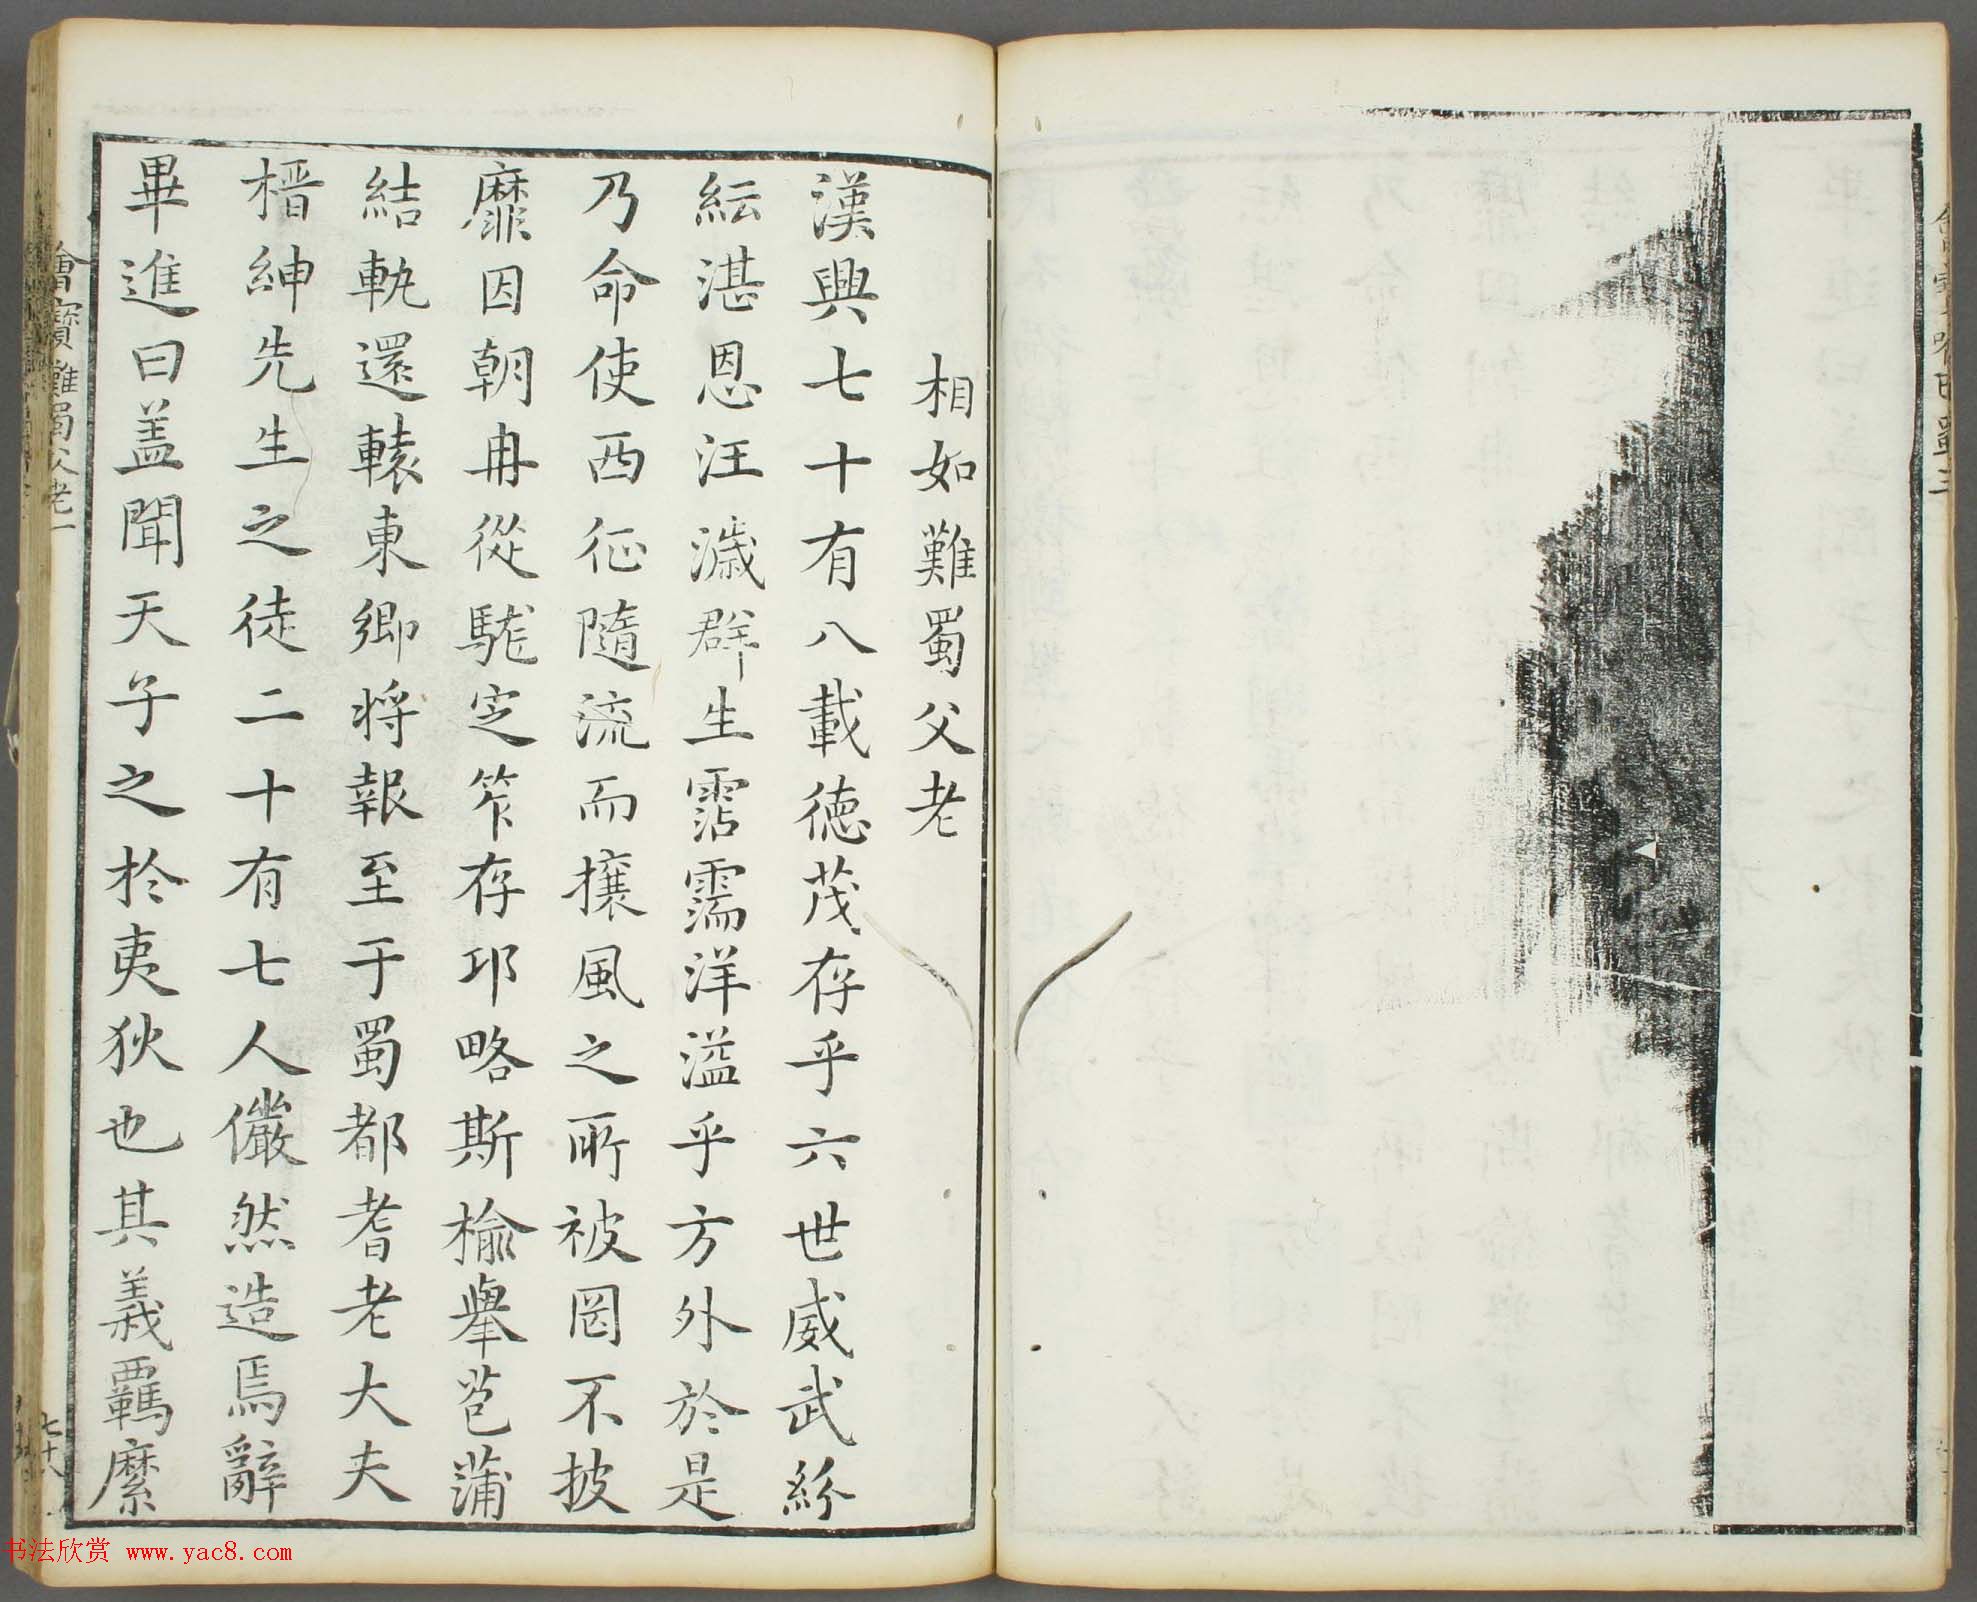 相如難蜀父老
漢興七十有八載德茂存乎六世威武紛
紜湛恩汪濊群生霑濡洋溢乎方外於是
乃命使西征隨流而攘風之所被罔不披
靡因朝冉從駹定笮存邛略斯榆舉苞蒲
結軌還轅東鄉將報至于蜀都耆老大夫
搢紳先生之徒二十有七人儼然造焉辭
畢進曰盖聞天子之於夷狄也其義羈縻
難蜀父老一
七十八
书法欣赏 www.yac8.com